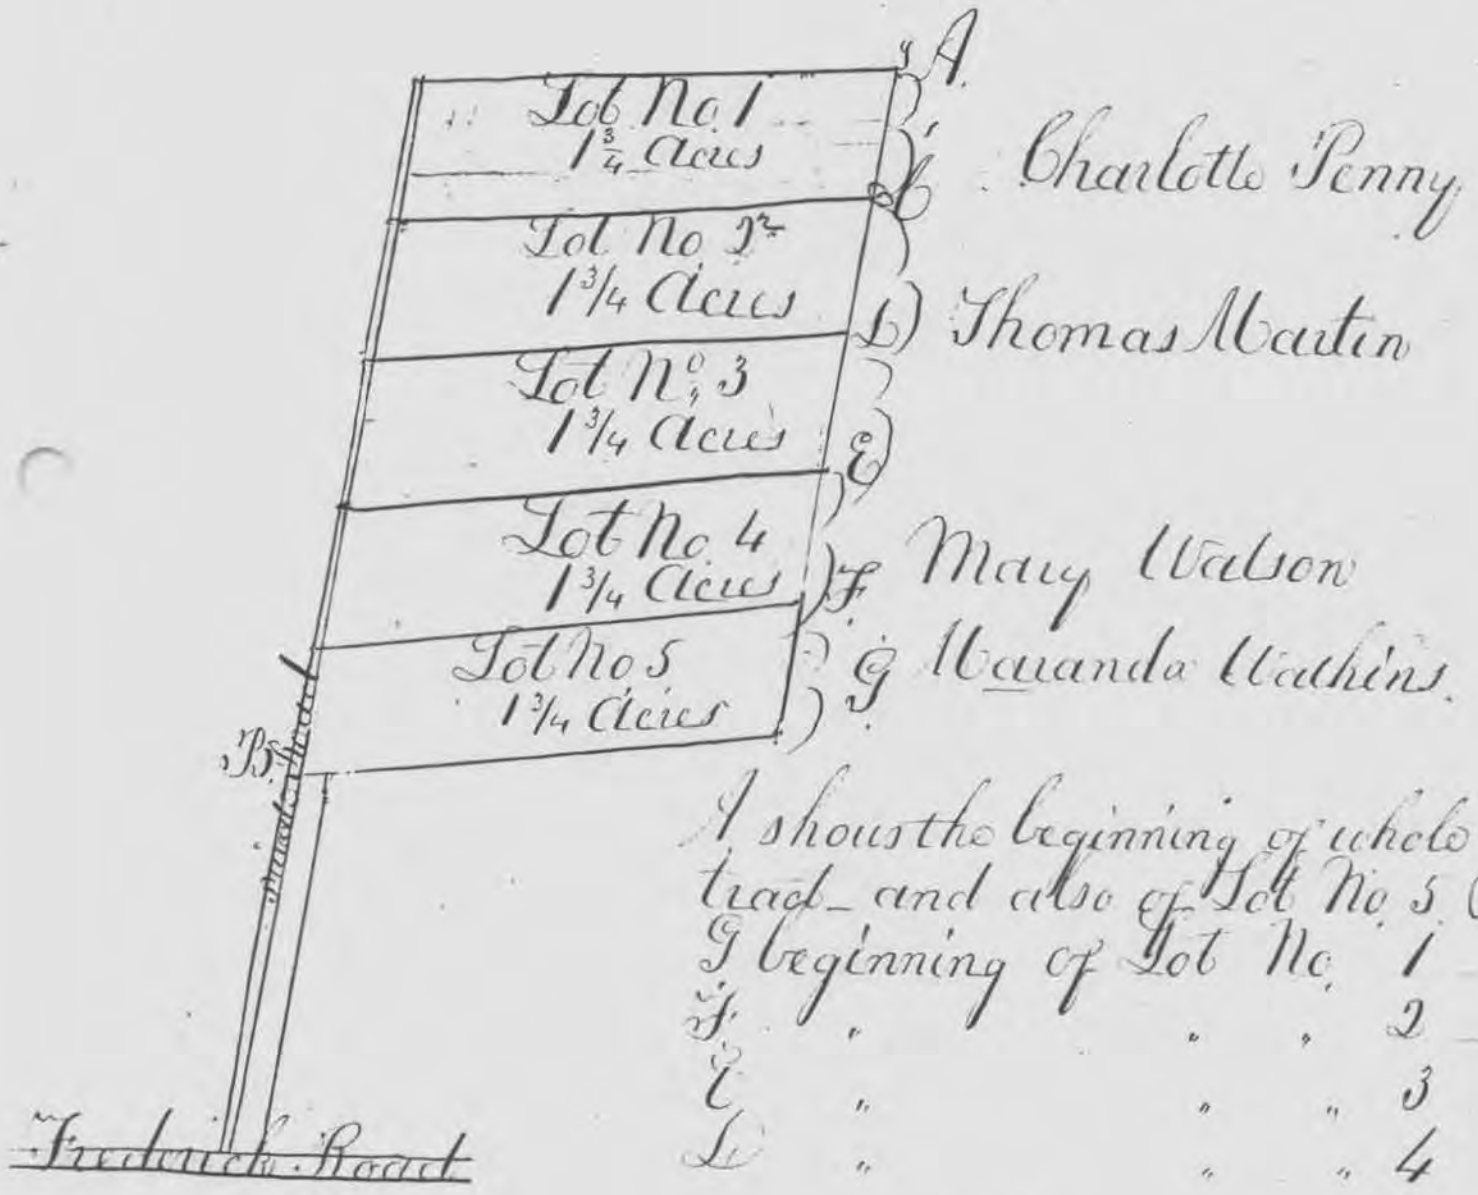 A.
Lot No. 1
1 3/4 Acres
C
Charlotte Penny
Lot No. 2
1 3/4 Acres
D
Thomas Martin
Lot No. 3
1 3/4 Acres
E
Lot No. 4
1 3/4 Acres
F.
Mary Watson
Lot No 5
1 3/4 Acres
G.
Maranda Wathins.
B.
road
A shows the beginning of whole
tract and also of Lot No. 5
G beginning of Lot No. 1
F. " " " 2
E " " " 3
D " " " 4
Frederick Road